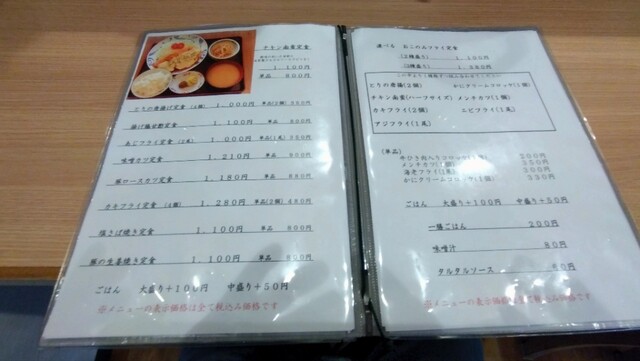 チキン南蛮定食
1,100円
単品 800円
とりの唐揚げ定食 (5個) 1,000円
揚げ鶏甘酢定食 1,100円 単品 800円
あじフライ定食 (2尾) 1,000円
味噌カツ定食 1,210円 単品
豚ロースカツ定食 1,180円 単品 880円
カキフライ定食 1,280円 単品(2個)
塩さば焼き定食 1,100円 単品 800円
豚の生姜焼き定食 1,100円 単品 800円
ごはん 大盛り+100円 中盛り+50円
※メニューの表示価格は全て税込み価格です
選べる おこのみフライ定食
(2種盛り) 1,100円
(3種盛り)
とりの唐揚(2個) かにクリームコロッケ(1個)
チキン南蛮(ハーフサイズ) メンチカツ(1個)
カキフライ(2個) エビフライ(1尾)
アジフライ(1尾)
(単品)
牛ひき肉入りコロッケ
メンチカツ(1個)
海老フライ(1尾)
かにクリームコロッケ(1個)
ごはん 大盛り+100円 中盛り+50円
一膳ごはん 200円
味噌汁 80円
タルタルソース 60円
※メニューの表示価格は全て税込み価格です